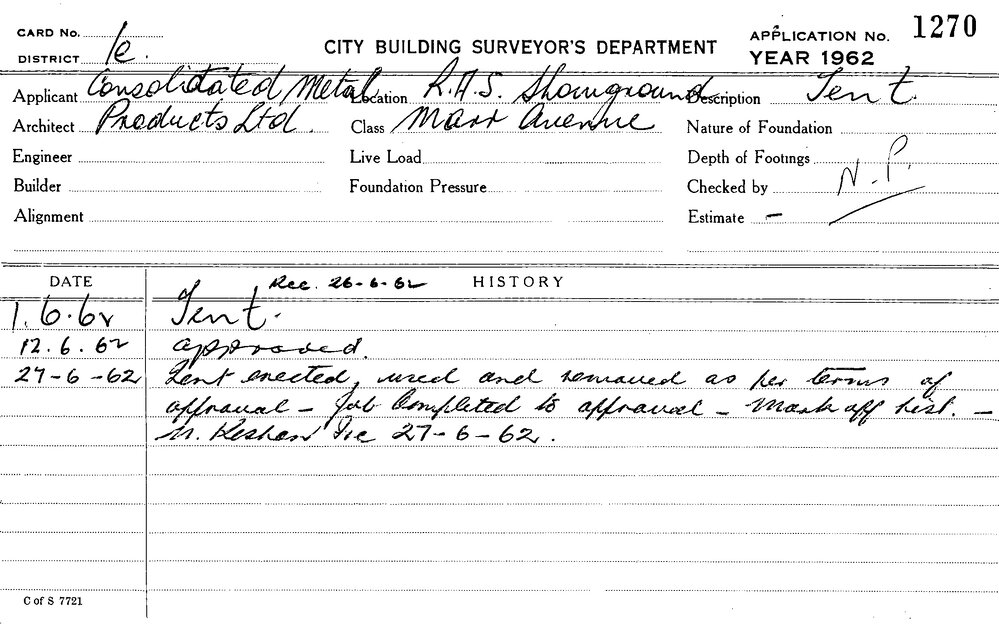 CARD No.
CITY BUILDING SURVEYOR'S DEPARTMENT
APPLICATION No. 1270
DISTRICT 1e.
YEAR 1962
Applicant Consolidated Metal Location R.A.S. Showground Description Tent.
Architect Products Ltd. Class Avenue Nature of Foundation
Engineer Live Load Depth of Footings
Builder Foundation Pressure Checked by N.P.
Alignment Estimate -
DATE Rec. 26-6-62 HISTORY
1.6.62 Tent.
12.6.62 approved.
27-6-62 Tent erected, used and removed as per terms of
approval - Job Completed to approval - Mark off list. -
27-6-62.
C of S 7721